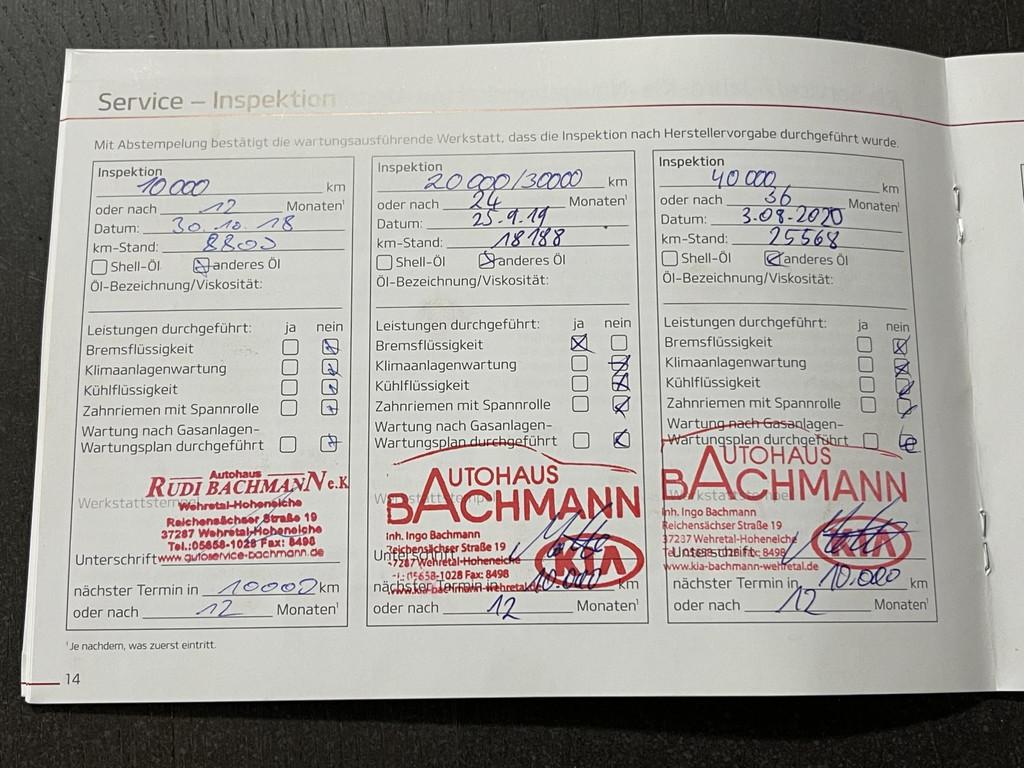 Service – Inspektion
Mit Abstempelung bestätigt die wartungsausführende Werkstatt, dass die Inspektion nach Herstellervorgabe durchgeführt wurde.
Inspektion
10000 km
oder nach 12 Monaten¹
Datum: 30.10.18
km-Stand: 8800
Shell-Öl anderes Öl
Öl-Bezeichnung/Viskosität:
Leistungen durchgeführt: ja nein
Bremsflüssigkeit
Klimaanlagenwartung
Kühlflüssigkeit
Zahnriemen mit Spannrolle
Wartung nach Gasanlagen-
Wartungsplan durchgeführt
Autohaus
RUDI BACHMANN e.K
Werkstattstempel
Wehretal-Hoheneiche
Reichensächser Straße 19
37287 Wehretal-Hoheneiche
Tel.:05658-1028 Fax: 8498
Unterschrift www.autoservice-bachmann.de
nächster Termin in 10000 km
oder nach 12 Monaten¹
Inspektion
20000/30000 km
oder nach 24 Monaten¹
Datum: 25.9.19
km-Stand: 18188
Shell-Öl anderes Öl
Öl-Bezeichnung/Viskosität:
Leistungen durchgeführt: ja nein
Bremsflüssigkeit
Klimaanlagenwartung
Kühlflüssigkeit
Zahnriemen mit Spannrolle
Wartung nach Gasanlagen-
Wartungsplan durchgeführt
AUTOHAUS
BACHMANN
Werkstattstempel
Inh. Ingo Bachmann
Reichensächser Straße 19
37287 Wehretal-Hoheneiche
Unterschrift
KIA
05658-1028 Fax: 8498
www.kia-bachmann-wehretal.de
nächster Termin in 10.000 km
oder nach 12 Monaten¹
Inspektion
40000 km
oder nach 36 Monaten¹
Datum: 3.08.2020
km-Stand: 25568
Shell-Öl anderes Öl
Öl-Bezeichnung/Viskosität:
Leistungen durchgeführt: ja nein
Bremsflüssigkeit
Klimaanlagenwartung
Kühlflüssigkeit
Zahnriemen mit Spannrolle
Wartung nach Gasanlagen-
Wartungsplan durchgeführt
AUTOHAUS
BACHMANN
Werkstattstempel
Inh. Ingo Bachmann
Reichensächser Straße 19
37287 Wehretal-Hoheneiche
Tel.: 05658-1028 Fax: 8498
Unterschrift
KIA
www.kia-bachmann-wehretal.de
nächster Termin in 10.000 km
oder nach 12 Monaten¹
¹Je nachdem, was zuerst eintritt.
14